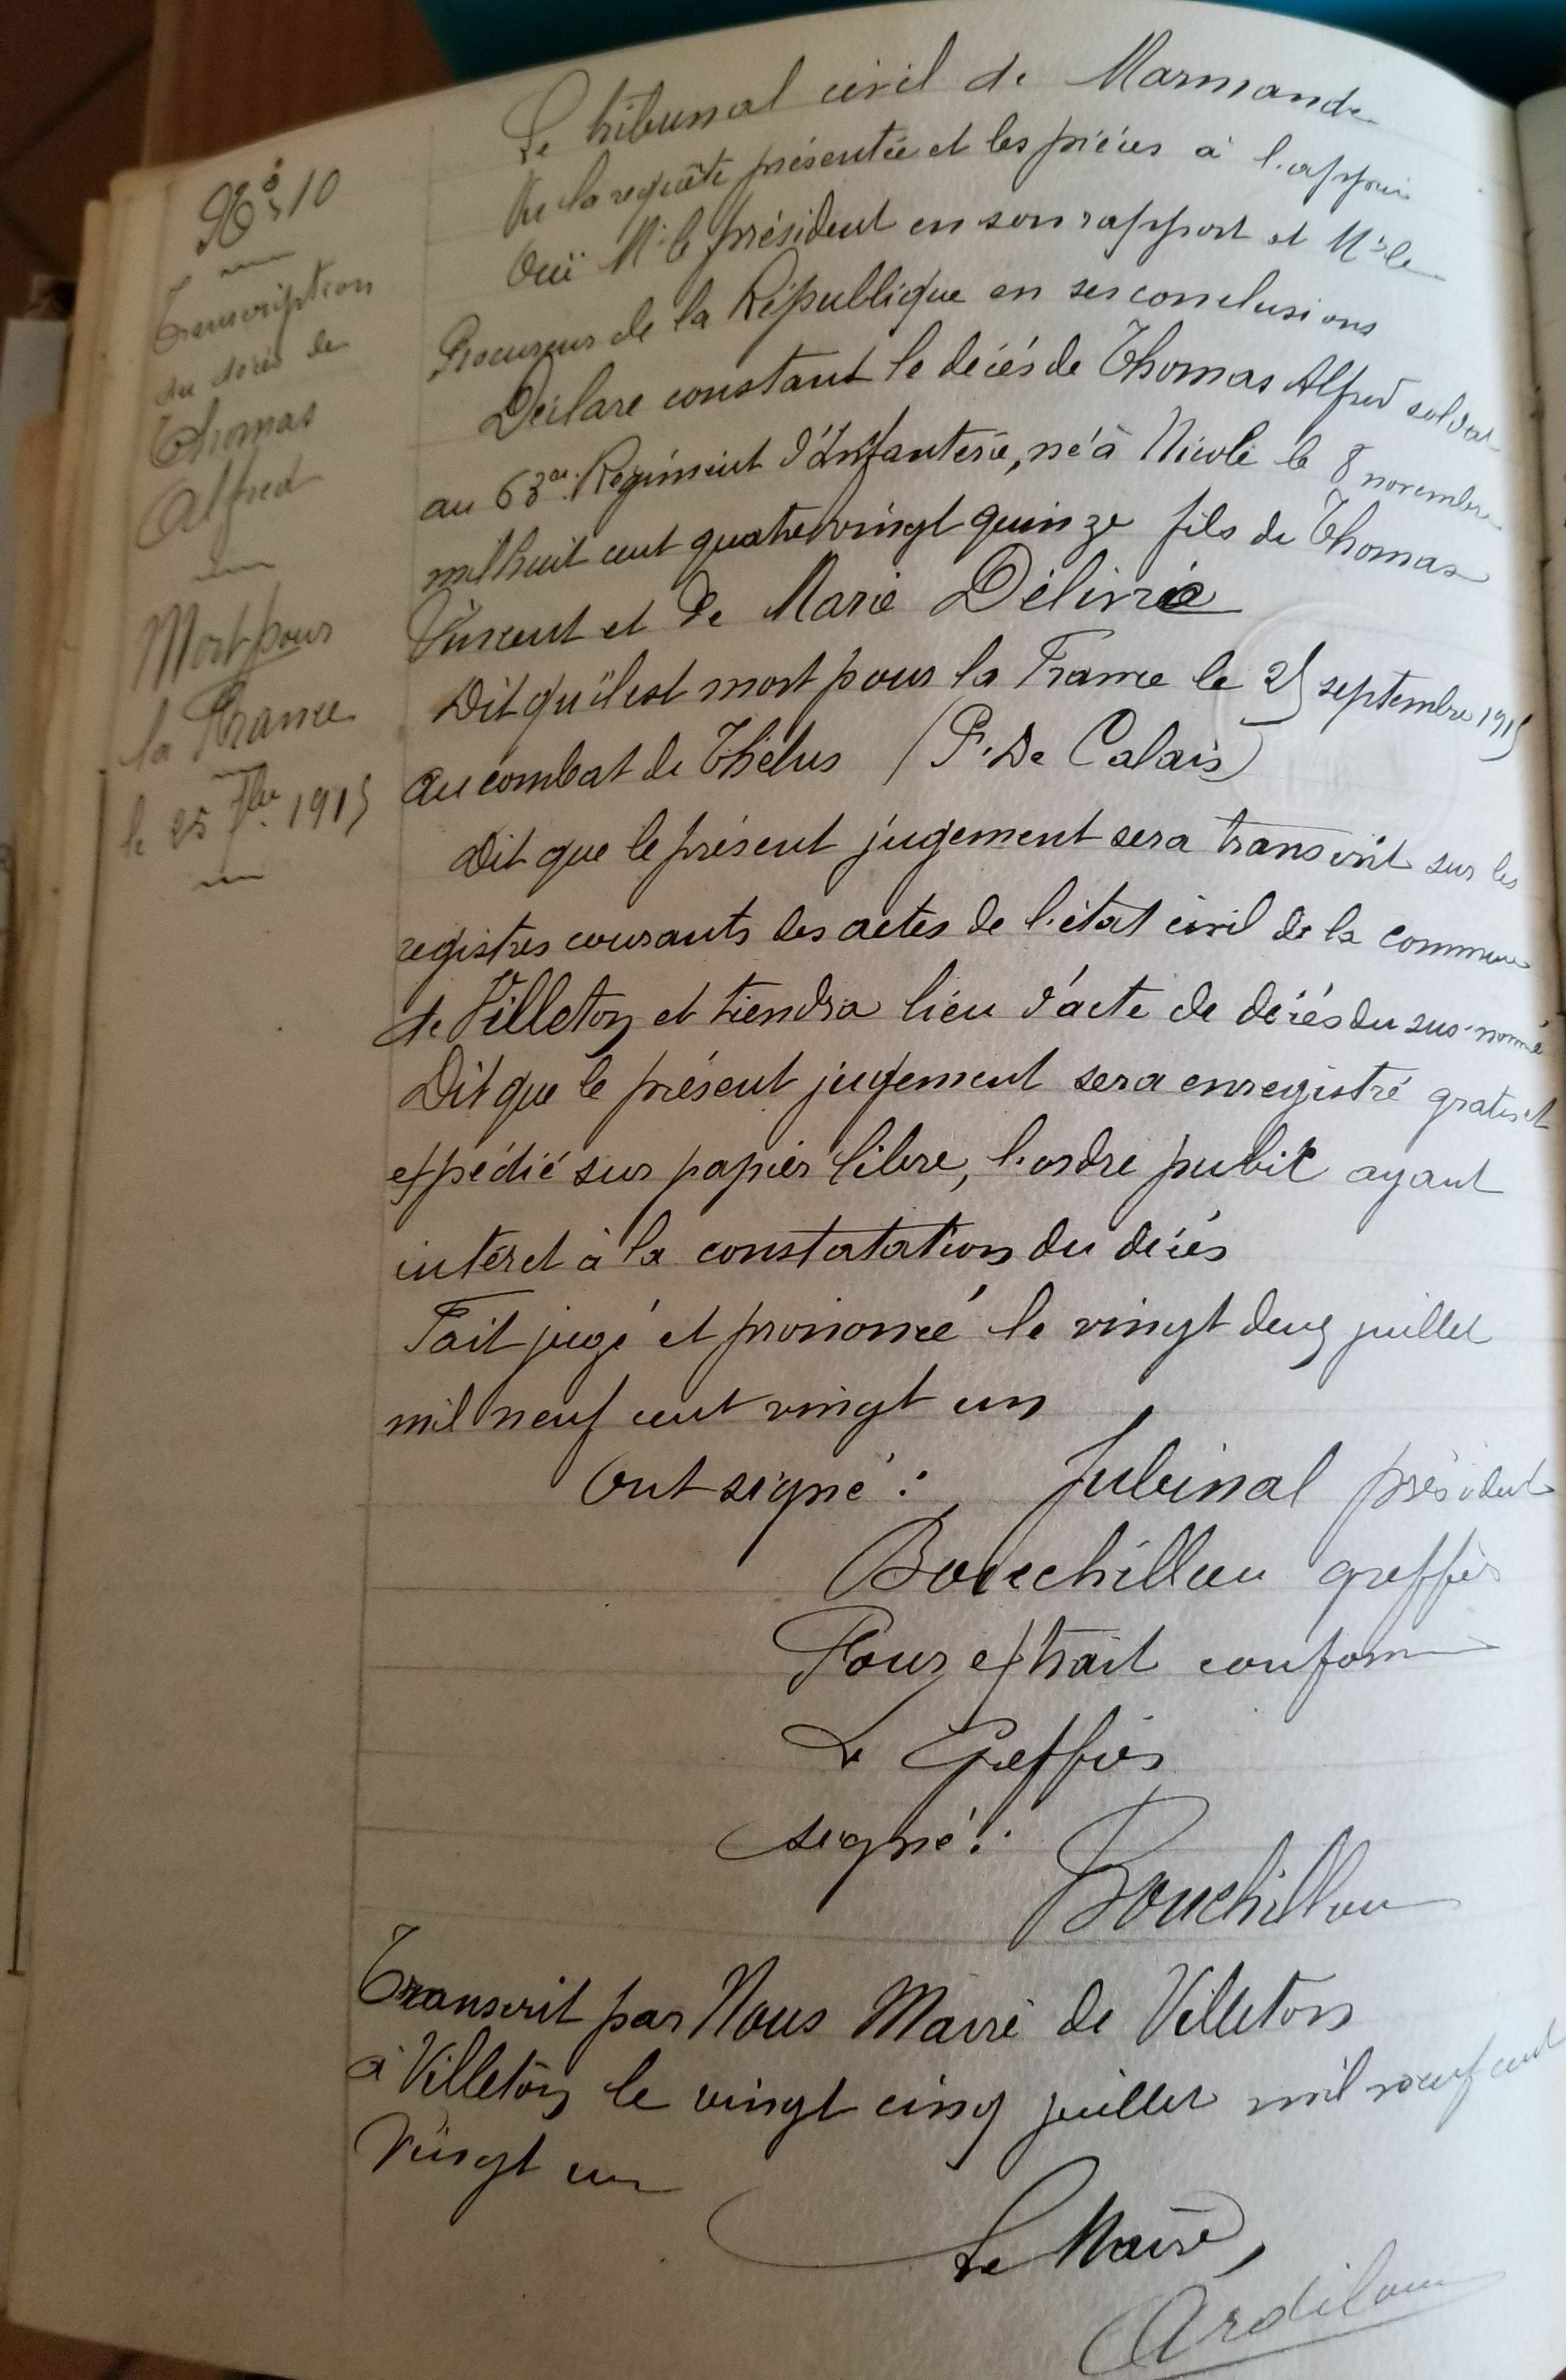 N° 10
Transcription
du décès de
Thomas
Alfred
Mort pour
la France
le 25 7bre 1915
Le tribunal civil de Marmande
Vu la requête présentée et les pièces à l'appui
Ouï Mr le président en son rapport et Mr le
Procureur de la République en ses conclusions
Déclare constant le décès de Thomas Alfred soldat
au 63me Régiment d'Infanterie, né à Nicole le 8 novembre
mil huit cent quatre vingt quinze fils de Thomas
Vincent et de Marie
Dit qu'il est mort pour la France le 25 septembre 1915
au combat de Thélus (P. De Calais)
Dit que le présent jugement sera transcrit sur les
registres courants des actes de l'état civil de la commune
de Villeton et tiendra lieu d'acte de décès du sus-nommé
Dit que le présent jugement sera enregistré gratis et
expédié sur papier libre, l'ordre public ayant
intéret à la constatation du décès
Fait jugé et prononcé le vingt deux juillet
mil neuf cent vingt un
Ont signé : Jubinal président
Bouchillou greffier
Pour extrait conforme
Le Greffier
signé : Bouchillou
Transcrit par Nous Maire de Villeton
à Villeton le vingt cinq juillet mil neuf cent
vingt un
Le Maire,